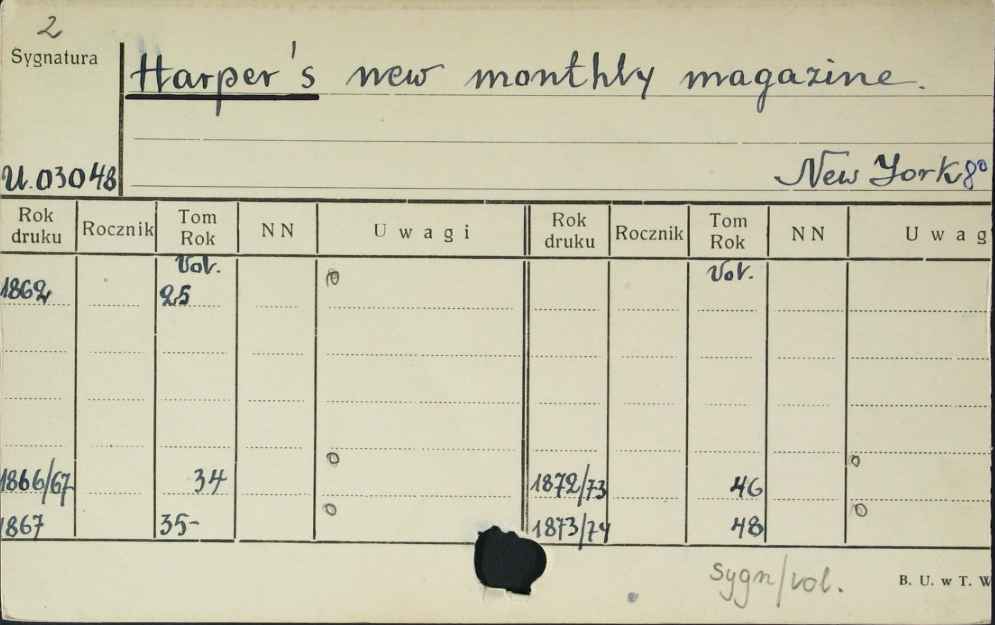 2
Sygnatura
Harper's new monthly magazine.
U.03048
New York 8°
Rok druku Rocznik Tom Rok NN Uwagi Rok druku Rocznik Tom Rok NN Uwag
Vol. Vol.
1862 25
1866/67 34 1872/73 46
1867 35- 1873/74 48
sygn/vol.
B. U. w T. W